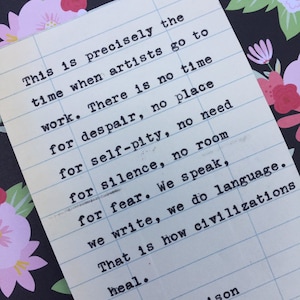 This is precisely the
time when artists go to
work. There is no time
for despair, no place
for self-pity, no need
for silence, no room
for fear. We speak,
we write, we do language.
That is how civilizations
heal.
ison